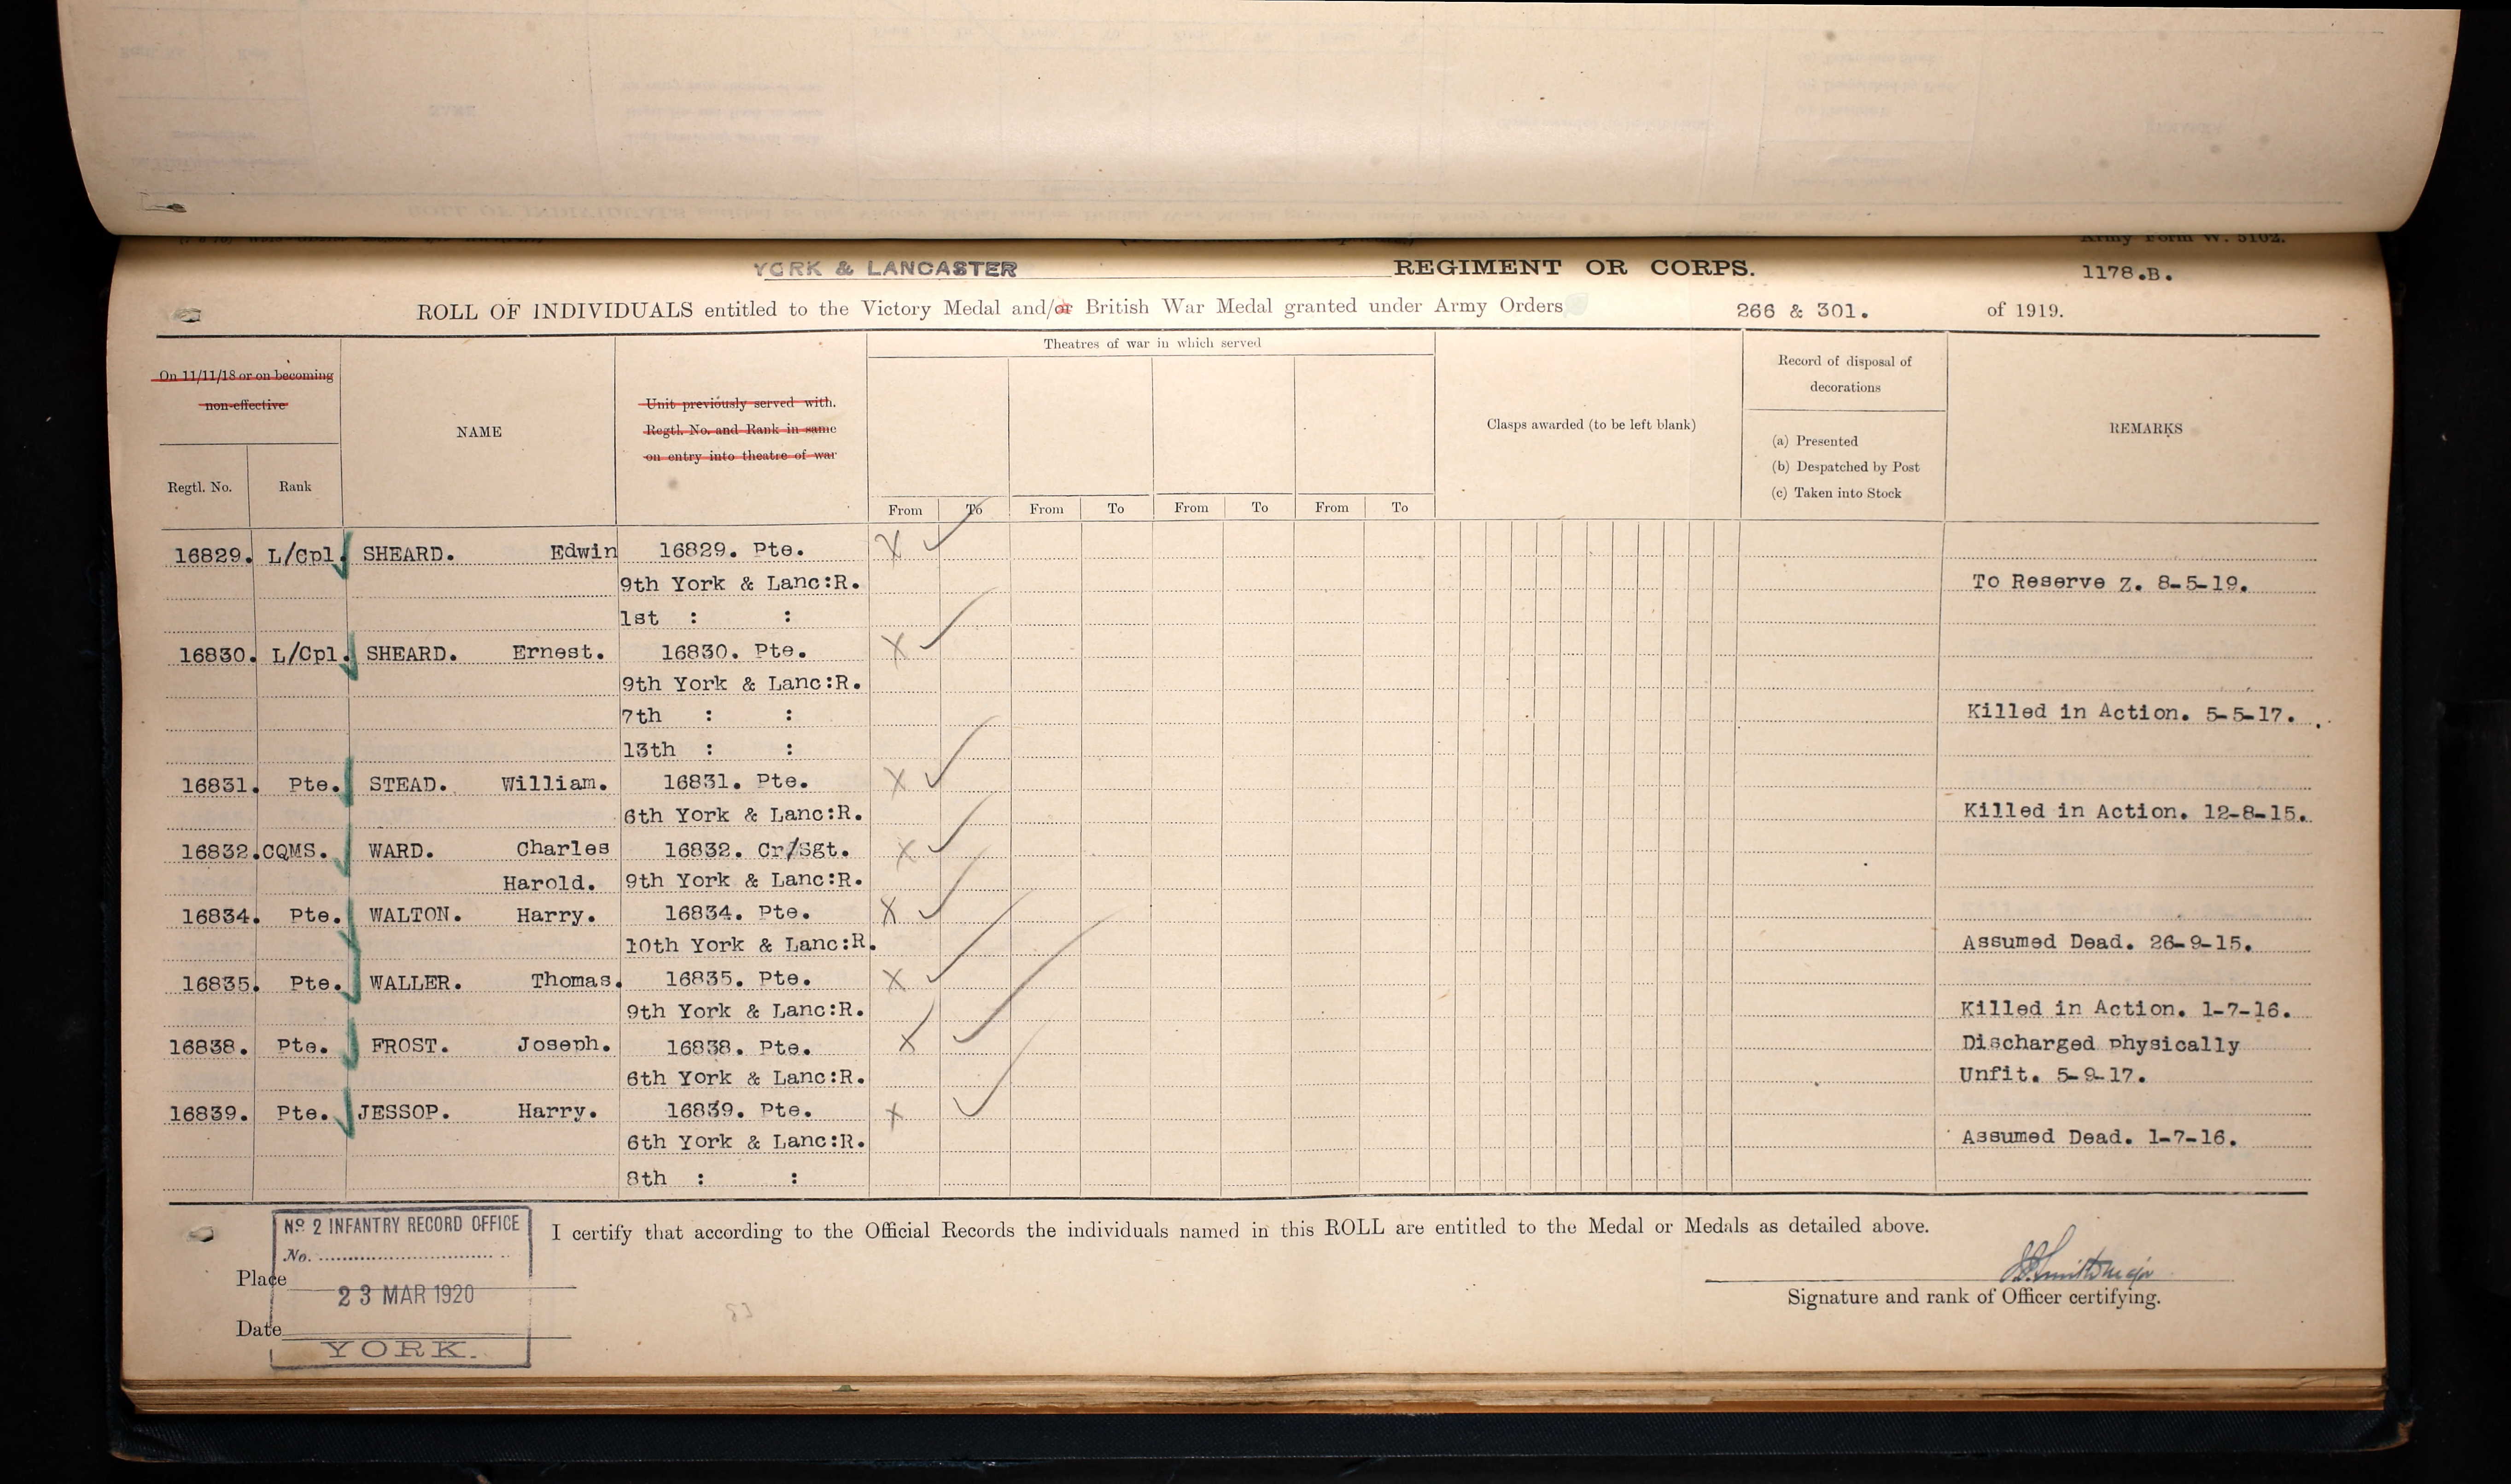 Army Form W. 5102.
YORK & LANCASTER REGIMENT OR CORPS. 1178.B.
ROLL OF INDIVIDUALS entitled to the Victory Medal and/or British War Medal granted under Army Orders 266 & 301. of 1919.
On 11/11/18 or on becoming non-effective
Regtl. No.
Rank
NAME
Unit previously served with.
Regtl. No. and Rank in same
on entry into theatre of war
Theatres of war in which served
From To From To From To From To
Clasps awarded (to be left blank)
Record of disposal of
decorations
(a) Presented
(b) Despatched by Post
(c) Taken into Stock
REMARKS
16829. L/Cpl. SHEARD. Edwin 16829. Pte. X
9th York & Lanc:R. To Reserve Z. 8-5-19.
1st : :
16830. L/Cpl. SHEARD. Ernest. 16830. Pte. X
9th York & Lanc:R.
7th : : Killed in Action. 5-5-17.
13th : :
16831. Pte. STEAD. William. 16831. Pte. X
6th York & Lanc:R. Killed in Action. 12-8-15.
16832. CQMS. WARD. Charles 16832. Cr/Sgt. X
Harold. 9th York & Lanc:R.
16834. Pte. WALTON. Harry. 16834. Pte. X
10th York & Lanc:R. Assumed Dead. 26-9-15.
16835. Pte. WALLER. Thomas. 16835. Pte. X
9th York & Lanc:R. Killed in Action. 1-7-16.
16838. Pte. FROST. Joseph. 16838. Pte. X Discharged physically
6th York & Lanc:R. Unfit. 5-9-17.
16839. Pte. JESSOP. Harry. 16839. Pte. X
6th York & Lanc:R. Assumed Dead. 1-7-16.
8th : :
I certify that according to the Official Records the individuals named in this ROLL are entitled to the Medal or Medals as detailed above.
No 2 INFANTRY RECORD OFFICE
No.
Place
23 MAR 1920
Date
YORK.
Smith Major
Signature and rank of Officer certifying.